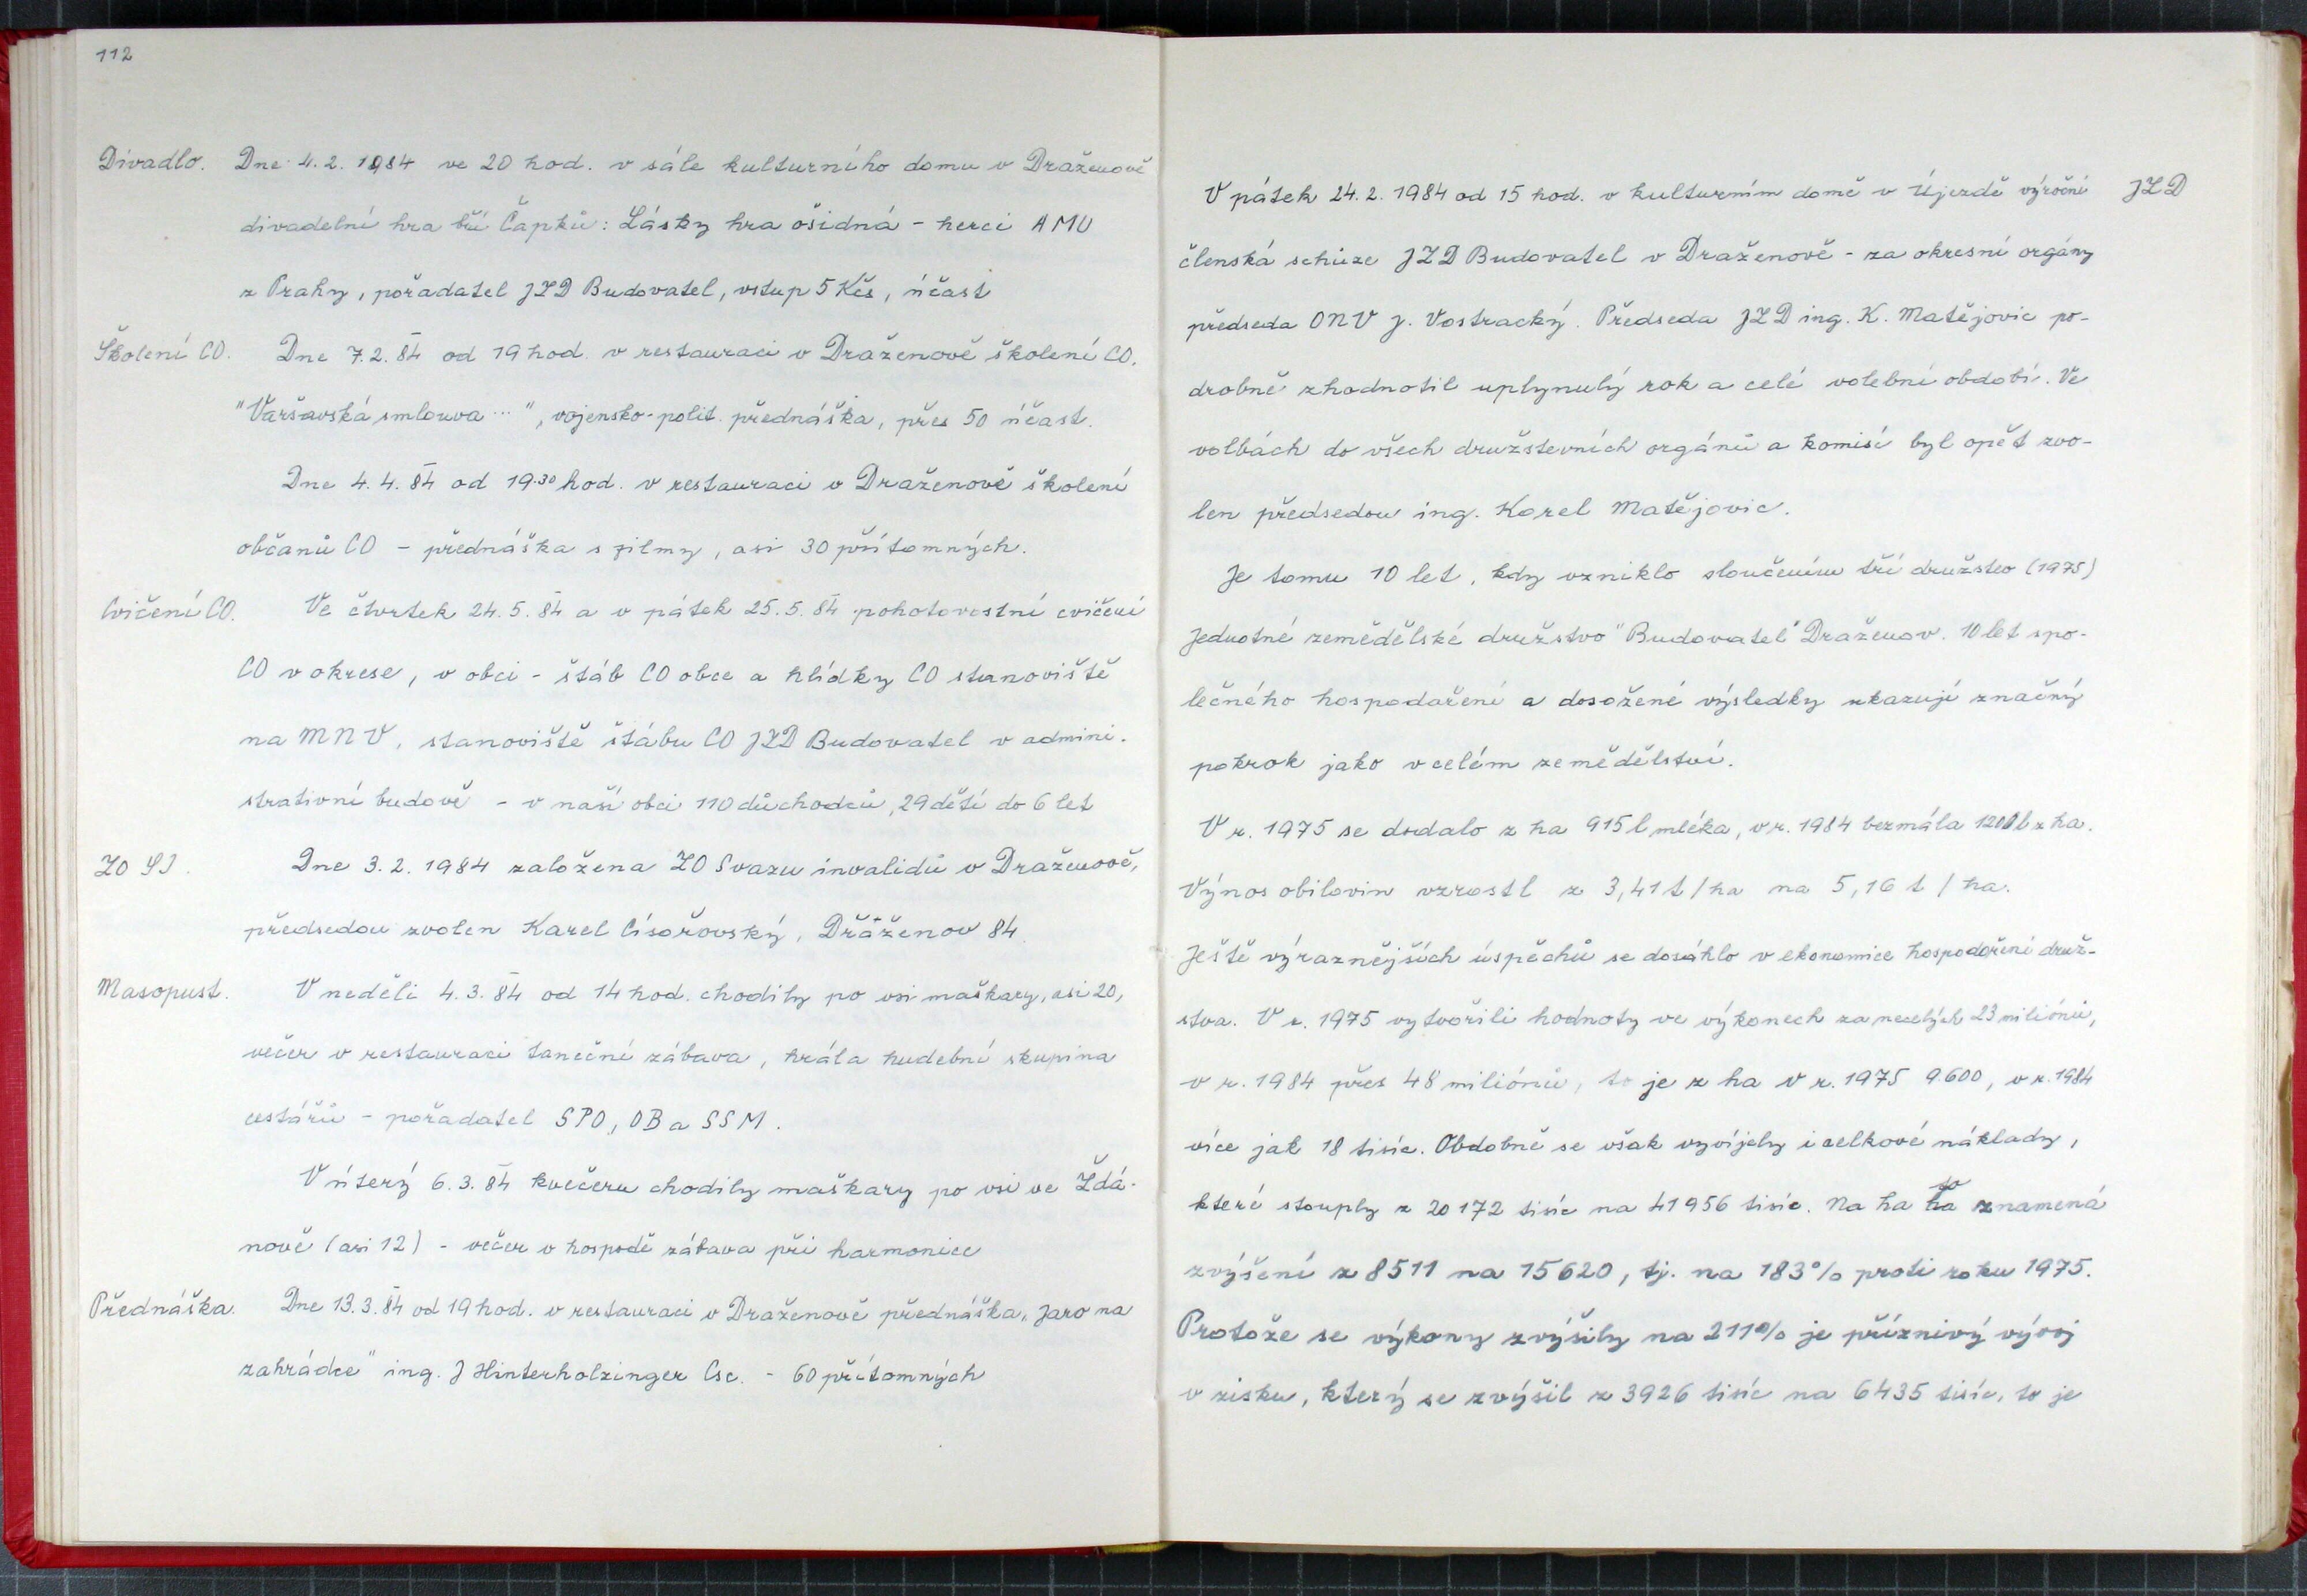 112
Divadlo. Dne 4. 2. 1984 ve 20 hod. v sále kulturního domu v Draženově
divadelní hra bří Čapků: Lásky hra ošidná - herci AMU
z Prahy, pořadatel JZD Budovatel, vstup 5 Kčs, účast
Školení CO. Dne 7. 2. 84 od 19 hod. v restauraci v Draženově školení CO.
"Varšavská smlouva ... ", vojensko-polit. přednáška, přes 50 účast.
Dne 4. 4. 84 od 19.30 hod. v restauraci v Draženově školení
občanů CO - přednáška s filmy, asi 30 přítomných.
Cvičení CO. Ve čtvrtek 24. 5. 84 a v pátek 25. 5. 84 pohotovostní cvičení
CO v okrese, v obci - štáb CO obce a hlídky CO stanoviště
na MNV, stanoviště štábu CO JZD Budovatel v admini-
strativní budově - v naší obci 110 důchodců, 29 dětí do 6 let
ZO SI. Dne 3. 2. 1984 založena ZO Svazu invalidů v Draženově,
předsedou zvolen Karel Císařovský, Draženov 84.
Masopust. V neděli 4. 3. 84 od 14 hod. chodily po vsi maškary, asi 20,
večer v restauraci taneční zábava, hrála hudební skupina
cestářů - pořadatel SPO, OB a SSM.
V úterý 6. 3. 84 kvečeru chodily maškary po vsi ve Ždá-
nově (asi 12) - večer v hospodě zábava při harmonice
Přednáška. Dne 13. 3. 84 od 19 hod. v restauraci v Draženově přednáška, Jaro na
zahrádce" ing. J Hinterholzinger Csc. - 60 přítomných
V pátek 24. 2. 1984 od 15 hod. v kulturním domě v Újezdě výroční JZD
členská schůze JZD Budovatel v Draženově - za okresní orgány
předseda ONV J. Vostracký. Předseda JZD ing. K. Matějovic po-
drobně zhodnotil uplynulý rok a celé volební období. Ve
volbách do všech družstevních orgánů a komisí byl opět zvo-
len předsedou ing. Karel Matějovic.
Je tomu 10 let, kdy vzniklo sloučením tří družstev (1975)
Jednotné zemědělské družstvo "Budovatel" Draženov. 10 let spo-
lečného hospodaření a dosožené výsledky ukazují značný
pokrok jako v celém zemědělství.
V r. 1975 se dodalo z ha 915 l mléka, v r. 1984 bezmála 1200 l z ha.
Výnos obilovin vzrostl z 3,41 t / ha na 5,16 t / ha.
Ještě výraznějších úspěchů se dosáhlo v ekonomice hospodaření druž-
stva. V r. 1975 vytvořili hodnoty ve výkonech za necelých 23 miliónů,
v r. 1984 přes 48 miliónů, to je z ha v r. 1975 9.600, v r. 1984
více jak 18 tisíc. Obdobně se však vyvíjely i celkové náklady,
které stouply z 20 172 tisíc na 41 956 tisíc. Na ha to znamená
zvýšení z 8511 na 15620, tj. na 183% proti roku 1975.
Protože se výkony zvýšily na 211% je příznivý vývoj
v zisku, který se zvýšil z 3926 tisíc na 6435 tisíc, to je